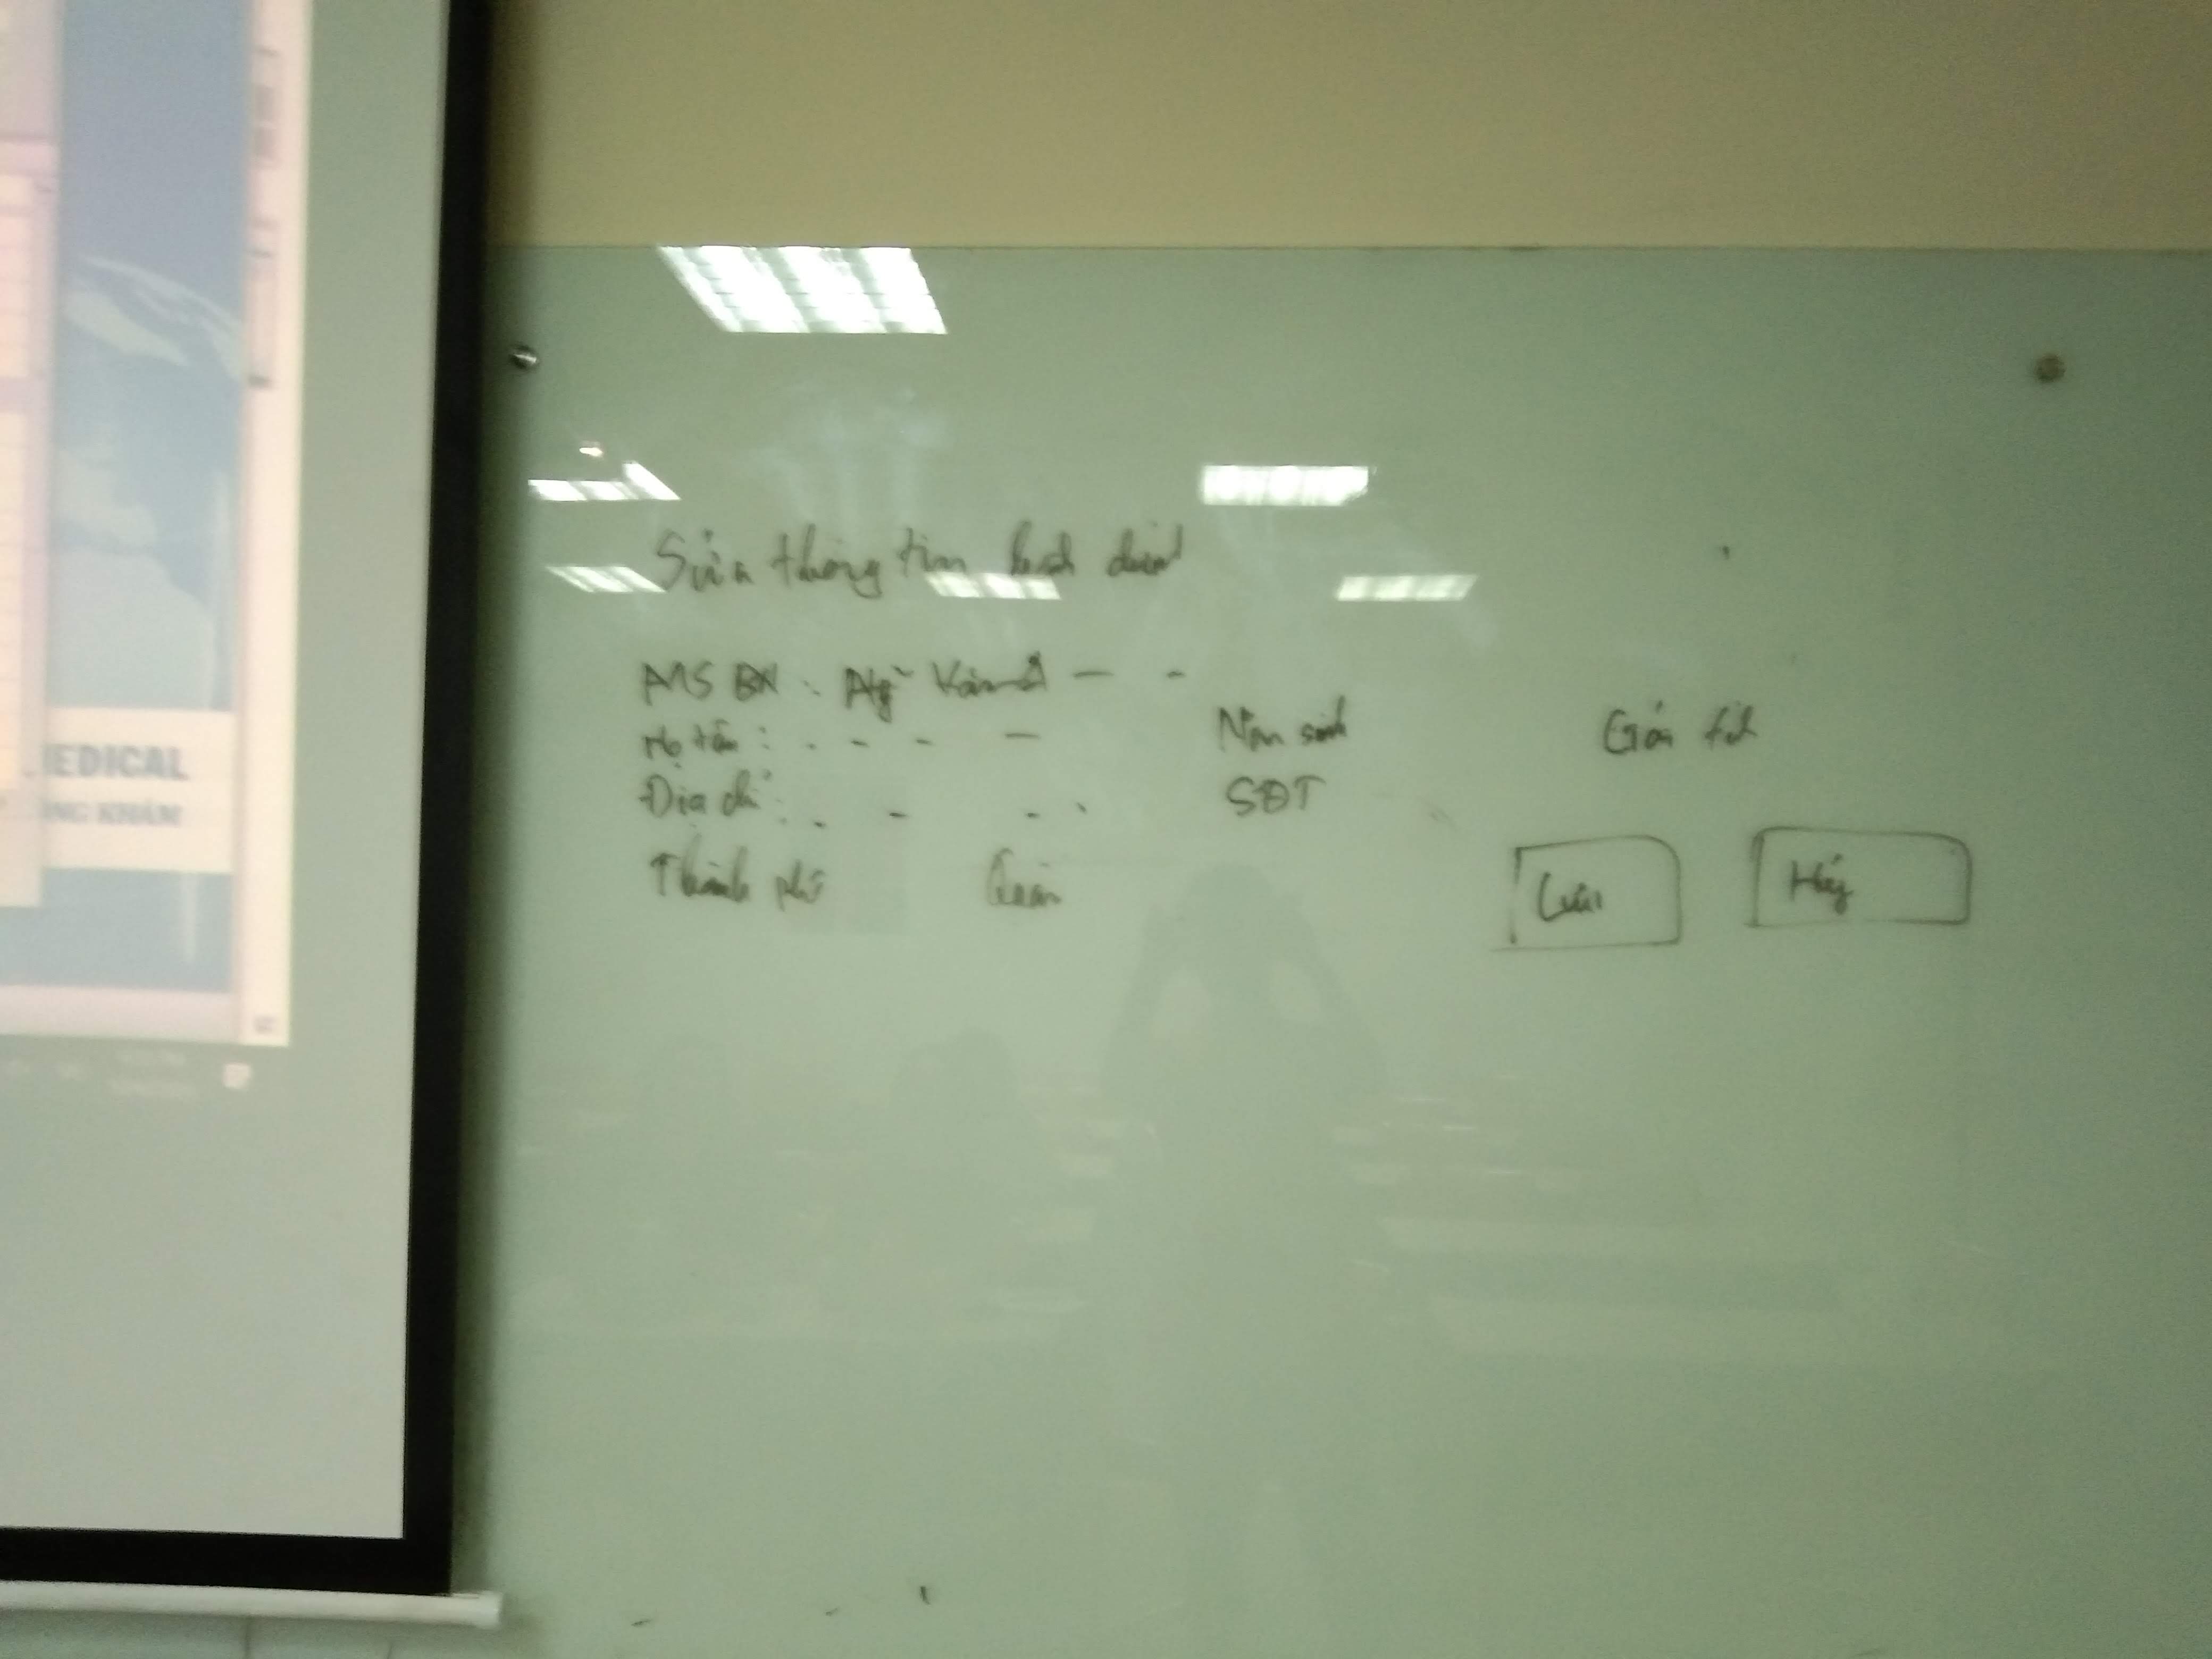 EDICAL
NG KHÁM
Sửa thông tin
MS BN :
Họ tên : Năm sinh Giới tính
Địa chỉ : SĐT
Thành phố Quận
Lưu Hủy